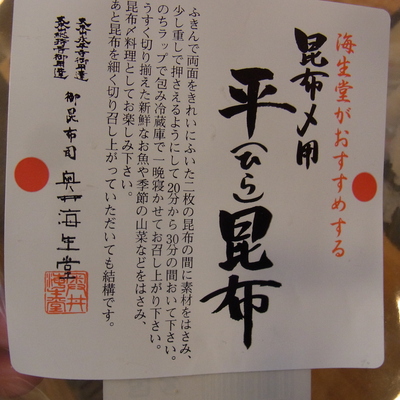 海生堂がおすすめする
昆布〆用
平(ひら)昆布
ふきんで両面をきれいにふいた二枚の昆布の間に素材をはさみ、
少し重しで押さえるようにして20分から30分の間おいて下さい。
のちラップで包み冷蔵庫で一晩寝かせてお召し上がり下さい。
うすく切り揃えた新鮮なお魚や季節の山菜などをはさみ、
昆布〆料理としてお楽しみ下さい。
あと昆布を細く切り召し上がっていただいても結構です。
大本山永平寺御用達
大本山總持寺御用達
御昆布司 奥井海生堂